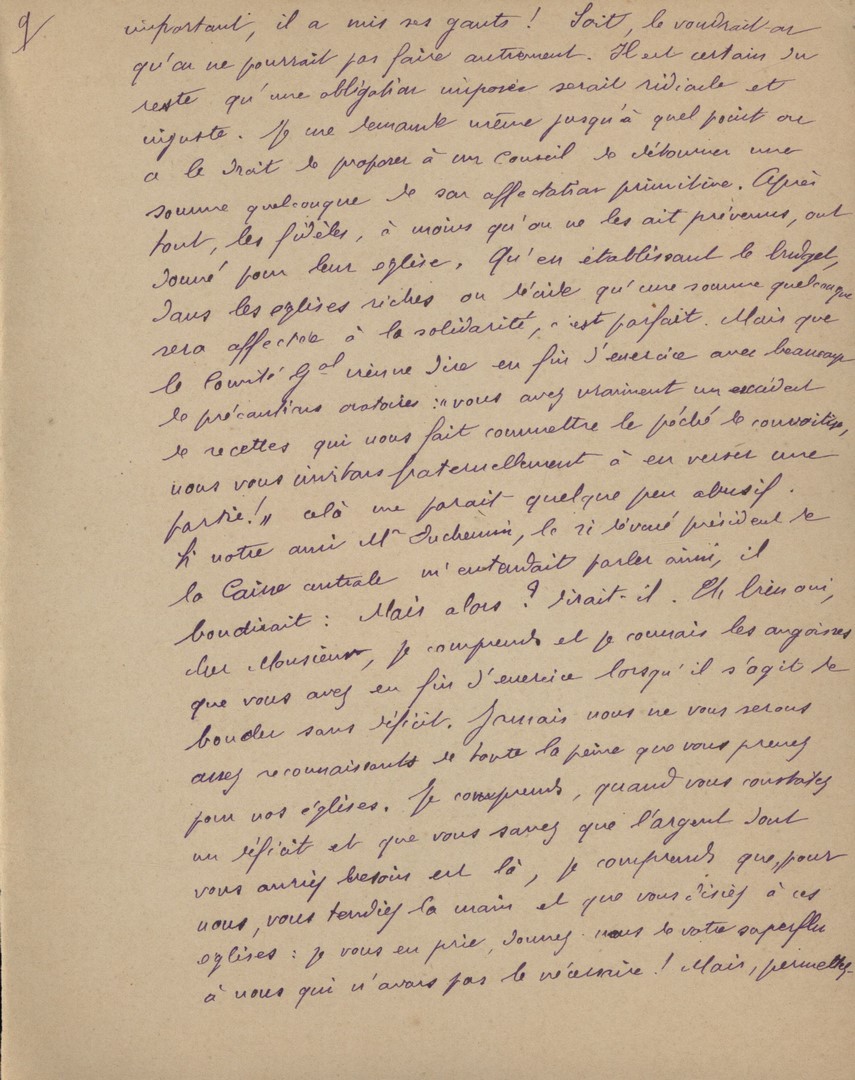 9/
important, il a mis ses gants ! Soit, le voudrait-on
qu'on ne pourrait pas faire autrement. Il est certain du
reste qu'une obligation imposée serait ridicule et
injuste. Je me demande même jusqu'à quel point on
a le droit de proposer à un Conseil de détourner une
somme quelconque de son affectation primitive. Après
tout, les fidèles, à moins qu'on ne les ait prévenus, ont
donné pour leur église. Qu'en établissant le budget,
dans les eglises riches on décide qu'une somme quelconque
sera affectée à la solidarité, c'est parfait. Mais que
le Comité Gal vienne dire en fin d'exercice avec beaucoup
de précautions oratoires : "vous avez vraiment un excédent
de recettes qui nous fait commettre le péché de convoitise,
nous vous invitons fraternellement à en verser une
partie !" celà me parait quelque peu abusif.
Si notre ami Mr Duchemin, le si dévoué président de
la Caisse centrale m'entendait parler ainsi, il
bondirait : Mais alors ? dirait-il. Eh bien oui,
cher Monsieur, je comprends et je connais les angoisses
que vous avez en fin d'exercice lorsqu'il s'agit de
boucler sans déficit. Jamais nous ne vous serons
assez reconnaissants de toute la peine que vous prenez
pour nos églises. Je comprends, quand vous constatez
un déficit et que vous savez que l'argent dont
vous auriez besoin est là, je comprends que, pour
nous, vous tendiez la main et que vous disiez à ces
eglises : je vous en prie, donnez nous de votre superflu
à nous qui n'avons pas le nécessaire ! Mais, permettez-